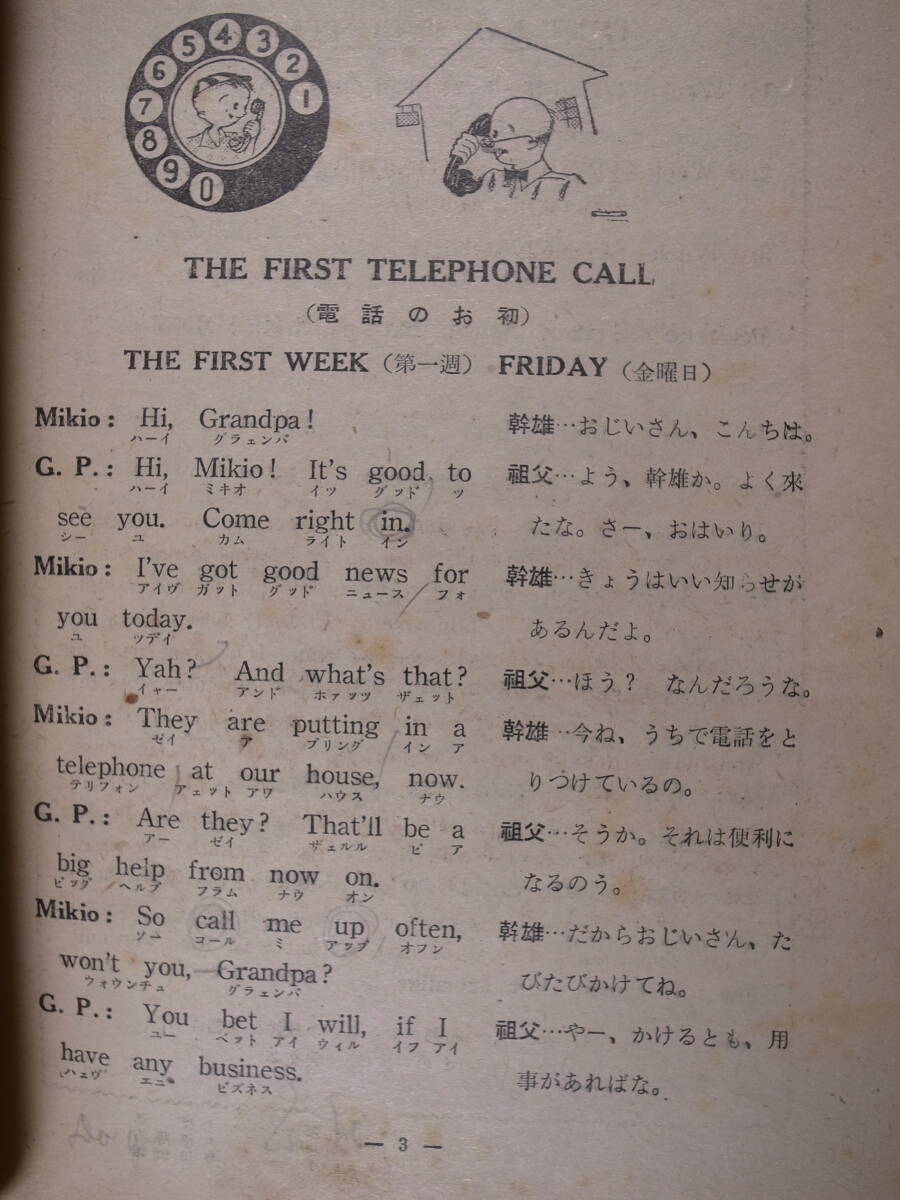 1
2
3
4
5
6
7
8
9
0
THE FIRST TELEPHONE CALL
(電話のお初)
THE FIRST WEEK (第一週) FRIDAY (金曜日)
Mikio: Hi, Grandpa!
ハーイ グラェンパ
G. P.: Hi, Mikio! It's good to
ハーイ ミキオ イツ グッド ツ
see you. Come right in.
シー ユ カム ライト イン
Mikio: I've got good news for
アイヴ ガット グッド ニュース フォ
you today.
ユ ツデイ
G. P.: Yah? And what's that?
イャー アンド ホァッツ ザェット
Mikio: They are putting in a
ゼイ ア プリング イン ア
telephone at our house, now.
テリフォン アェット アワ ハウス ナウ
G. P.: Are they? That'll be a
アー ゼイ ザェルル ビ ア
big help from now on.
ビッグ ヘルプ フラム ナウ オン
Mikio: So call me up often,
ソー コール ミ アップ オフン
won't you, Grandpa?
ウォウンチュ グラェンパ
G. P.: You bet I will, if I
ユー ベット アイ ウィル イフ アイ
have any business.
ハェヴ エニ ビズネス
幹雄…おじいさん、こんちは。
祖父…よう、幹雄か。よく來
たな。さー、おはいり。
幹雄…きょうはいい知らせが
あるんだよ。
祖父…ほう? なんだろうな。
幹雄‥今ね、うちで電話をと
りつけているの。
祖父…そうか。それは便利に
なるのう。
幹雄…だからおじいさん、た
びたびかけてね。
祖父…やー、かけるとも、用
事があればな。
— 3 —